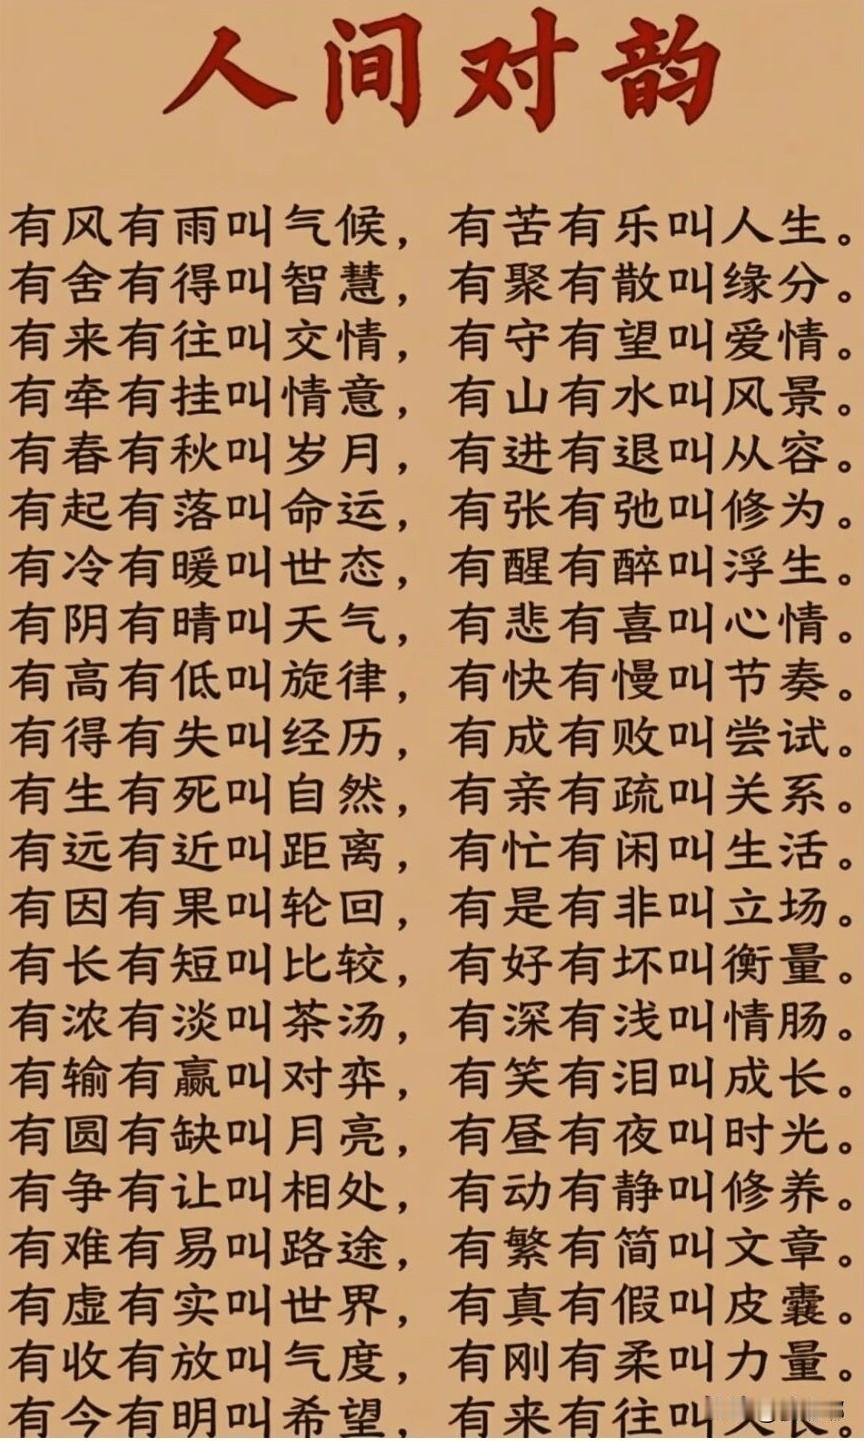 人间对韵
有风有雨叫气候，有苦有乐叫人生。
有舍有得叫智慧，有聚有散叫缘分。
有来有往叫交情，有守有望叫爱情。
有牵有挂叫情意，有山有水叫风景。
有春有秋叫岁月，有进有退叫从容。
有起有落叫命运，有张有弛叫修为。
有冷有暖叫世态，有醒有醉叫浮生。
有阴有晴叫天气，有悲有喜叫心情。
有高有低叫旋律，有快有慢叫节奏。
有得有失叫经历，有成有败叫尝试。
有生有死叫自然，有亲有疏叫关系。
有远有近叫距离，有忙有闲叫生活。
有因有果叫轮回，有是有非叫立场。
有长有短叫比较，有好有坏叫衡量。
有浓有淡叫茶汤，有深有浅叫情肠。
有输有赢叫对弈，有笑有泪叫成长。
有圆有缺叫月亮，有昼有夜叫时光。
有争有让叫相处，有动有静叫修养。
有难有易叫路途，有繁有简叫文章。
有虚有实叫世界，有真有假叫皮囊。
有收有放叫气度，有刚有柔叫力量。
有今有明叫希望，有来有往叫